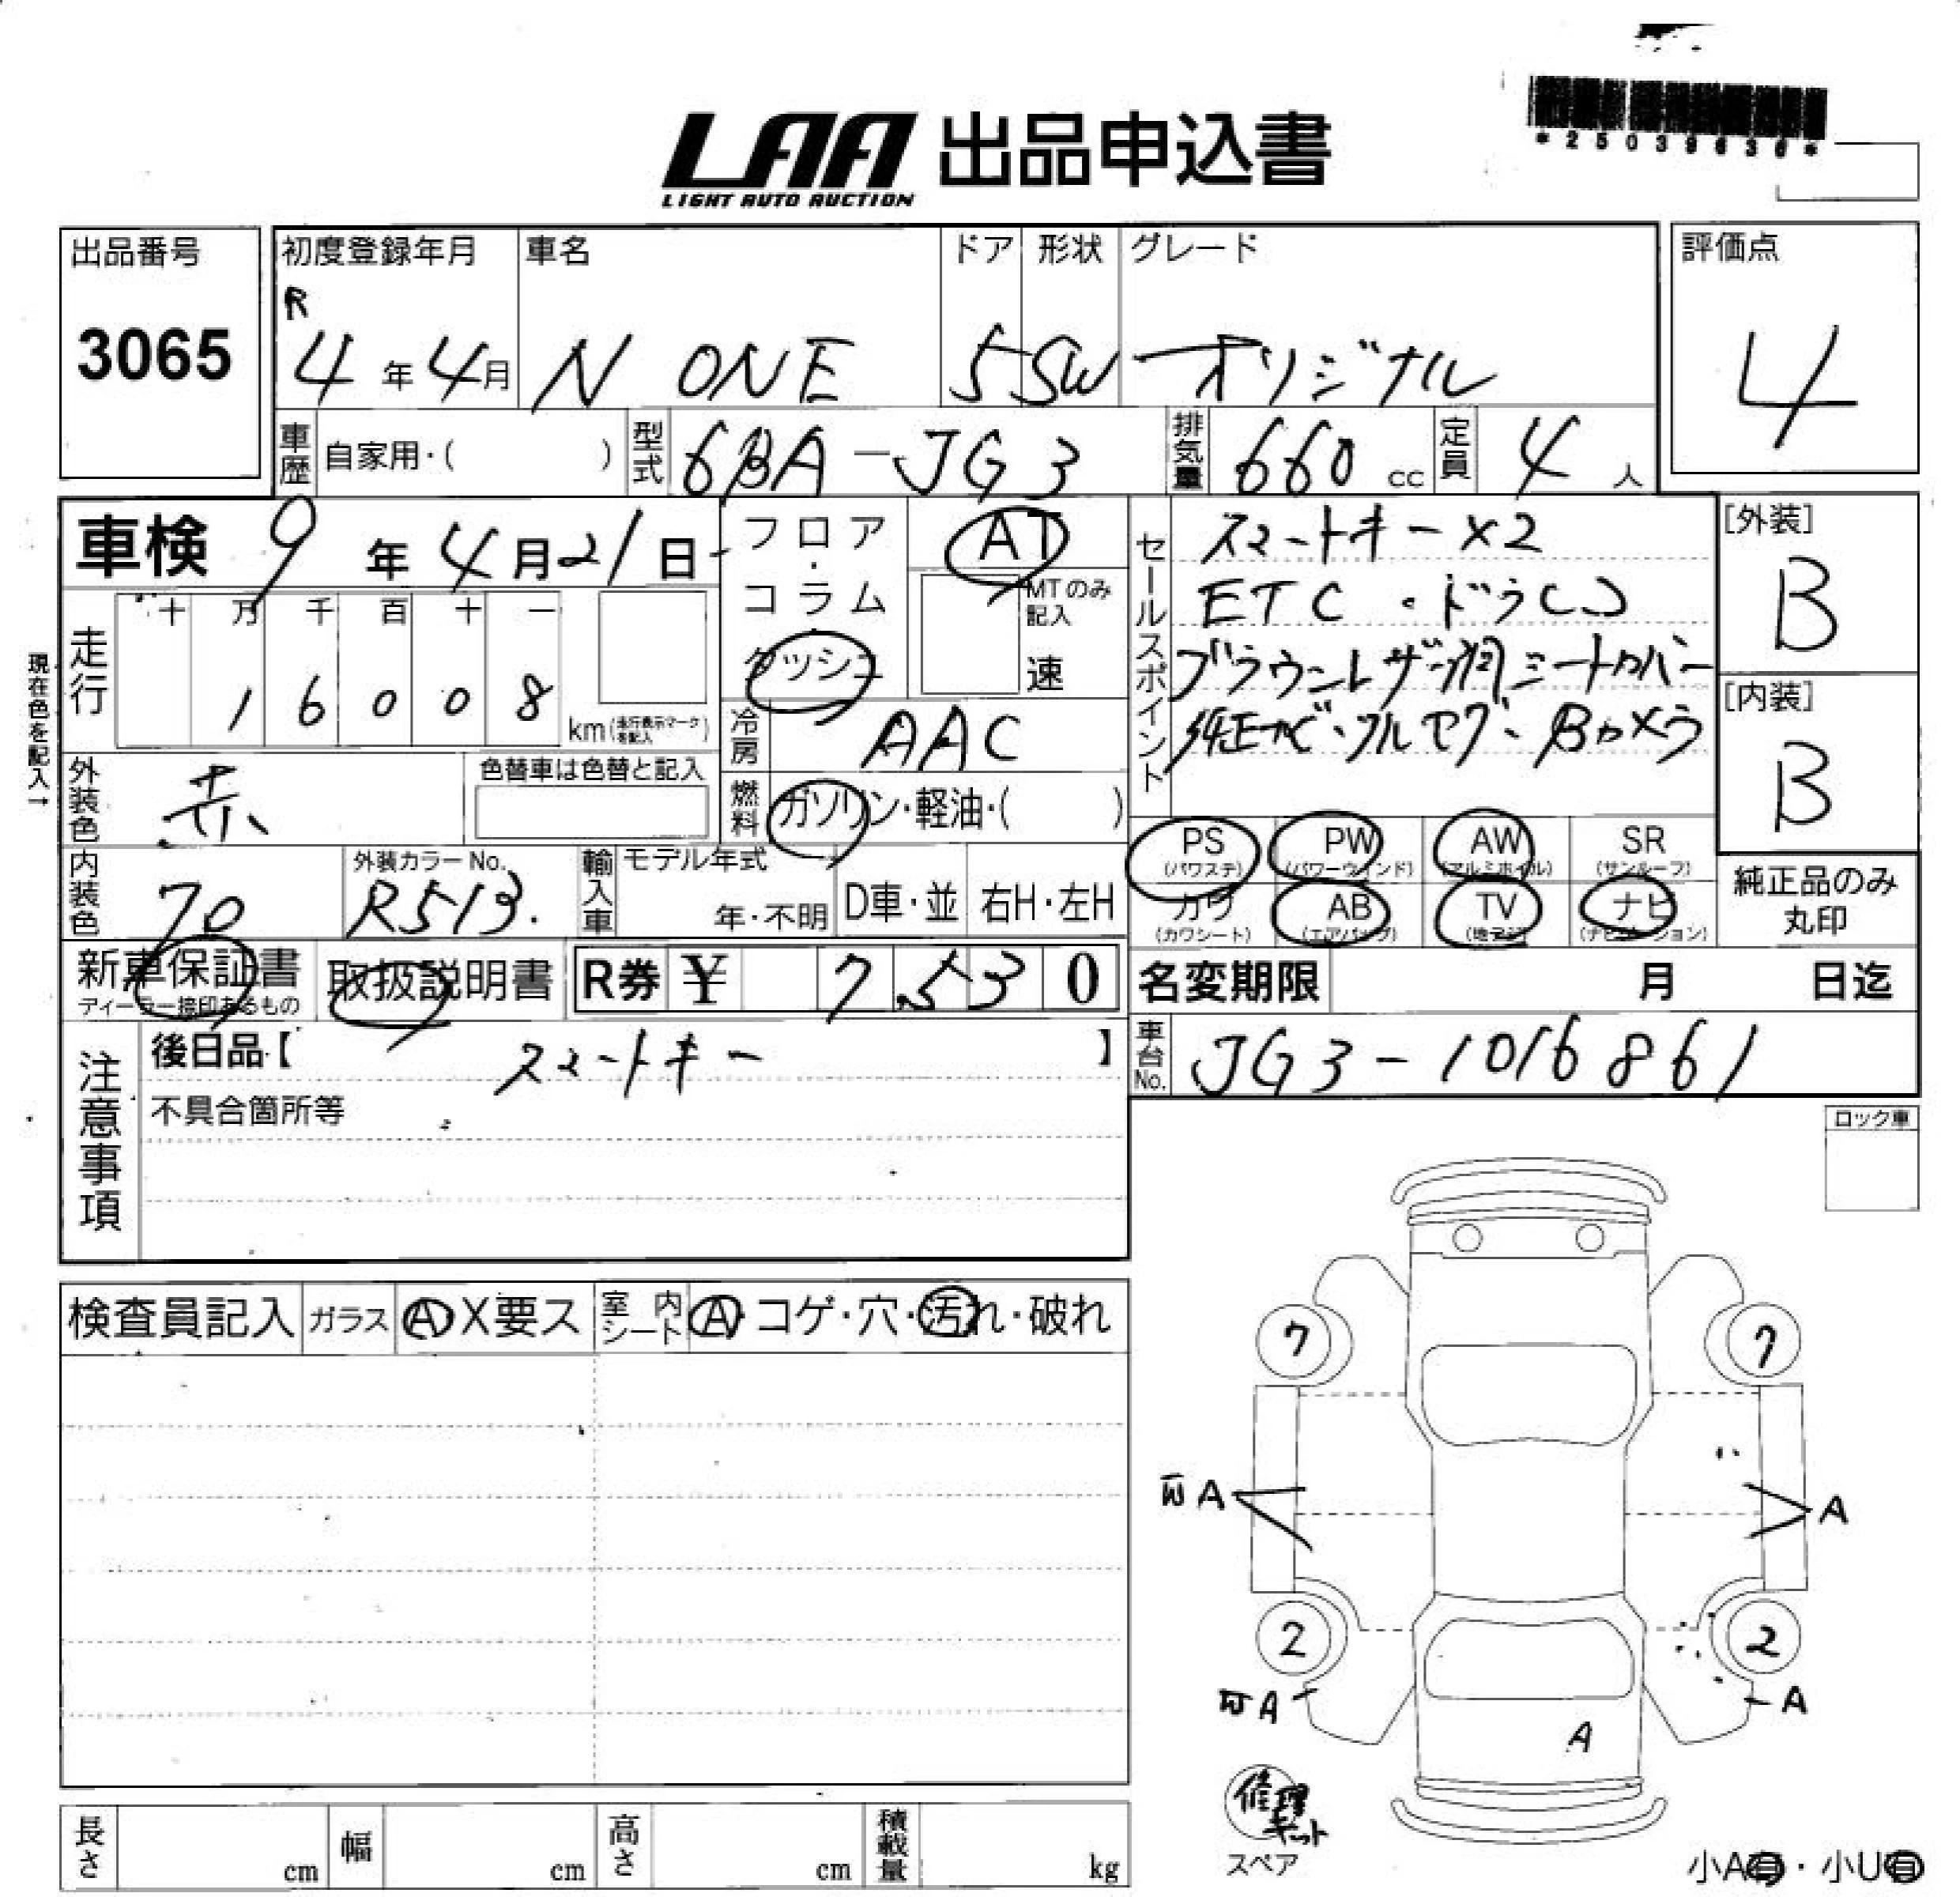 *25039636*
LAA 出品申込書
LIGHT AUTO AUCTION
出品番号 初度登録年月 車名 ドア 形状 グレード 評価点
3065 R 4年4月 N ONE 5 SW オリジナル 4
車歴 自家用・( ) 型式 6BA-JG3 排気量 660 cc 定員 4 人
車検 9年4月21日 フロア・コラム・ダッシュ AT MTのみ記入 速
セールスポイント
スマートキー×2
ETC・ドラレコ
ブラウンレザー調シートカバー
純正ナビ・フルセグ・Bカメラ
[外装] B
[内装] B
現在色を記入→
走行 十 万 千 百 十 一
1 6 0 0 8 km (走行表示マークを記入)
冷房 AAC
外装色 赤 色替車は色替と記入
燃料 ガソリン・軽油・( )
PS (パワステ) PW (パワーウインド) AW (アルミホイル) SR (サンルーフ)
カワ (カワシート) AB (エアバッグ) TV (地デジ) ナビ (ナビゲーション)
純正品のみ丸印
内装色 70 外装カラーNo. R513. 輸入車 モデル年式 年・不明 D車・並 右H・左H
新車保証書 ディーラー捺印あるもの 取扱説明書 R券 ¥ 7,530
名変期限 月 日迄
車台No. JG3-1016861
注意事項
後日品【 スマートキー 】
不具合箇所等
ロック車
検査員記入 ガラス A X要ス 室内シート A・コゲ・穴・汚れ・破れ
7 7
A A
2 2
A A
A
修理キット
スペア
小A有・小U有
長さ cm 幅 cm 高さ cm 積載量 kg